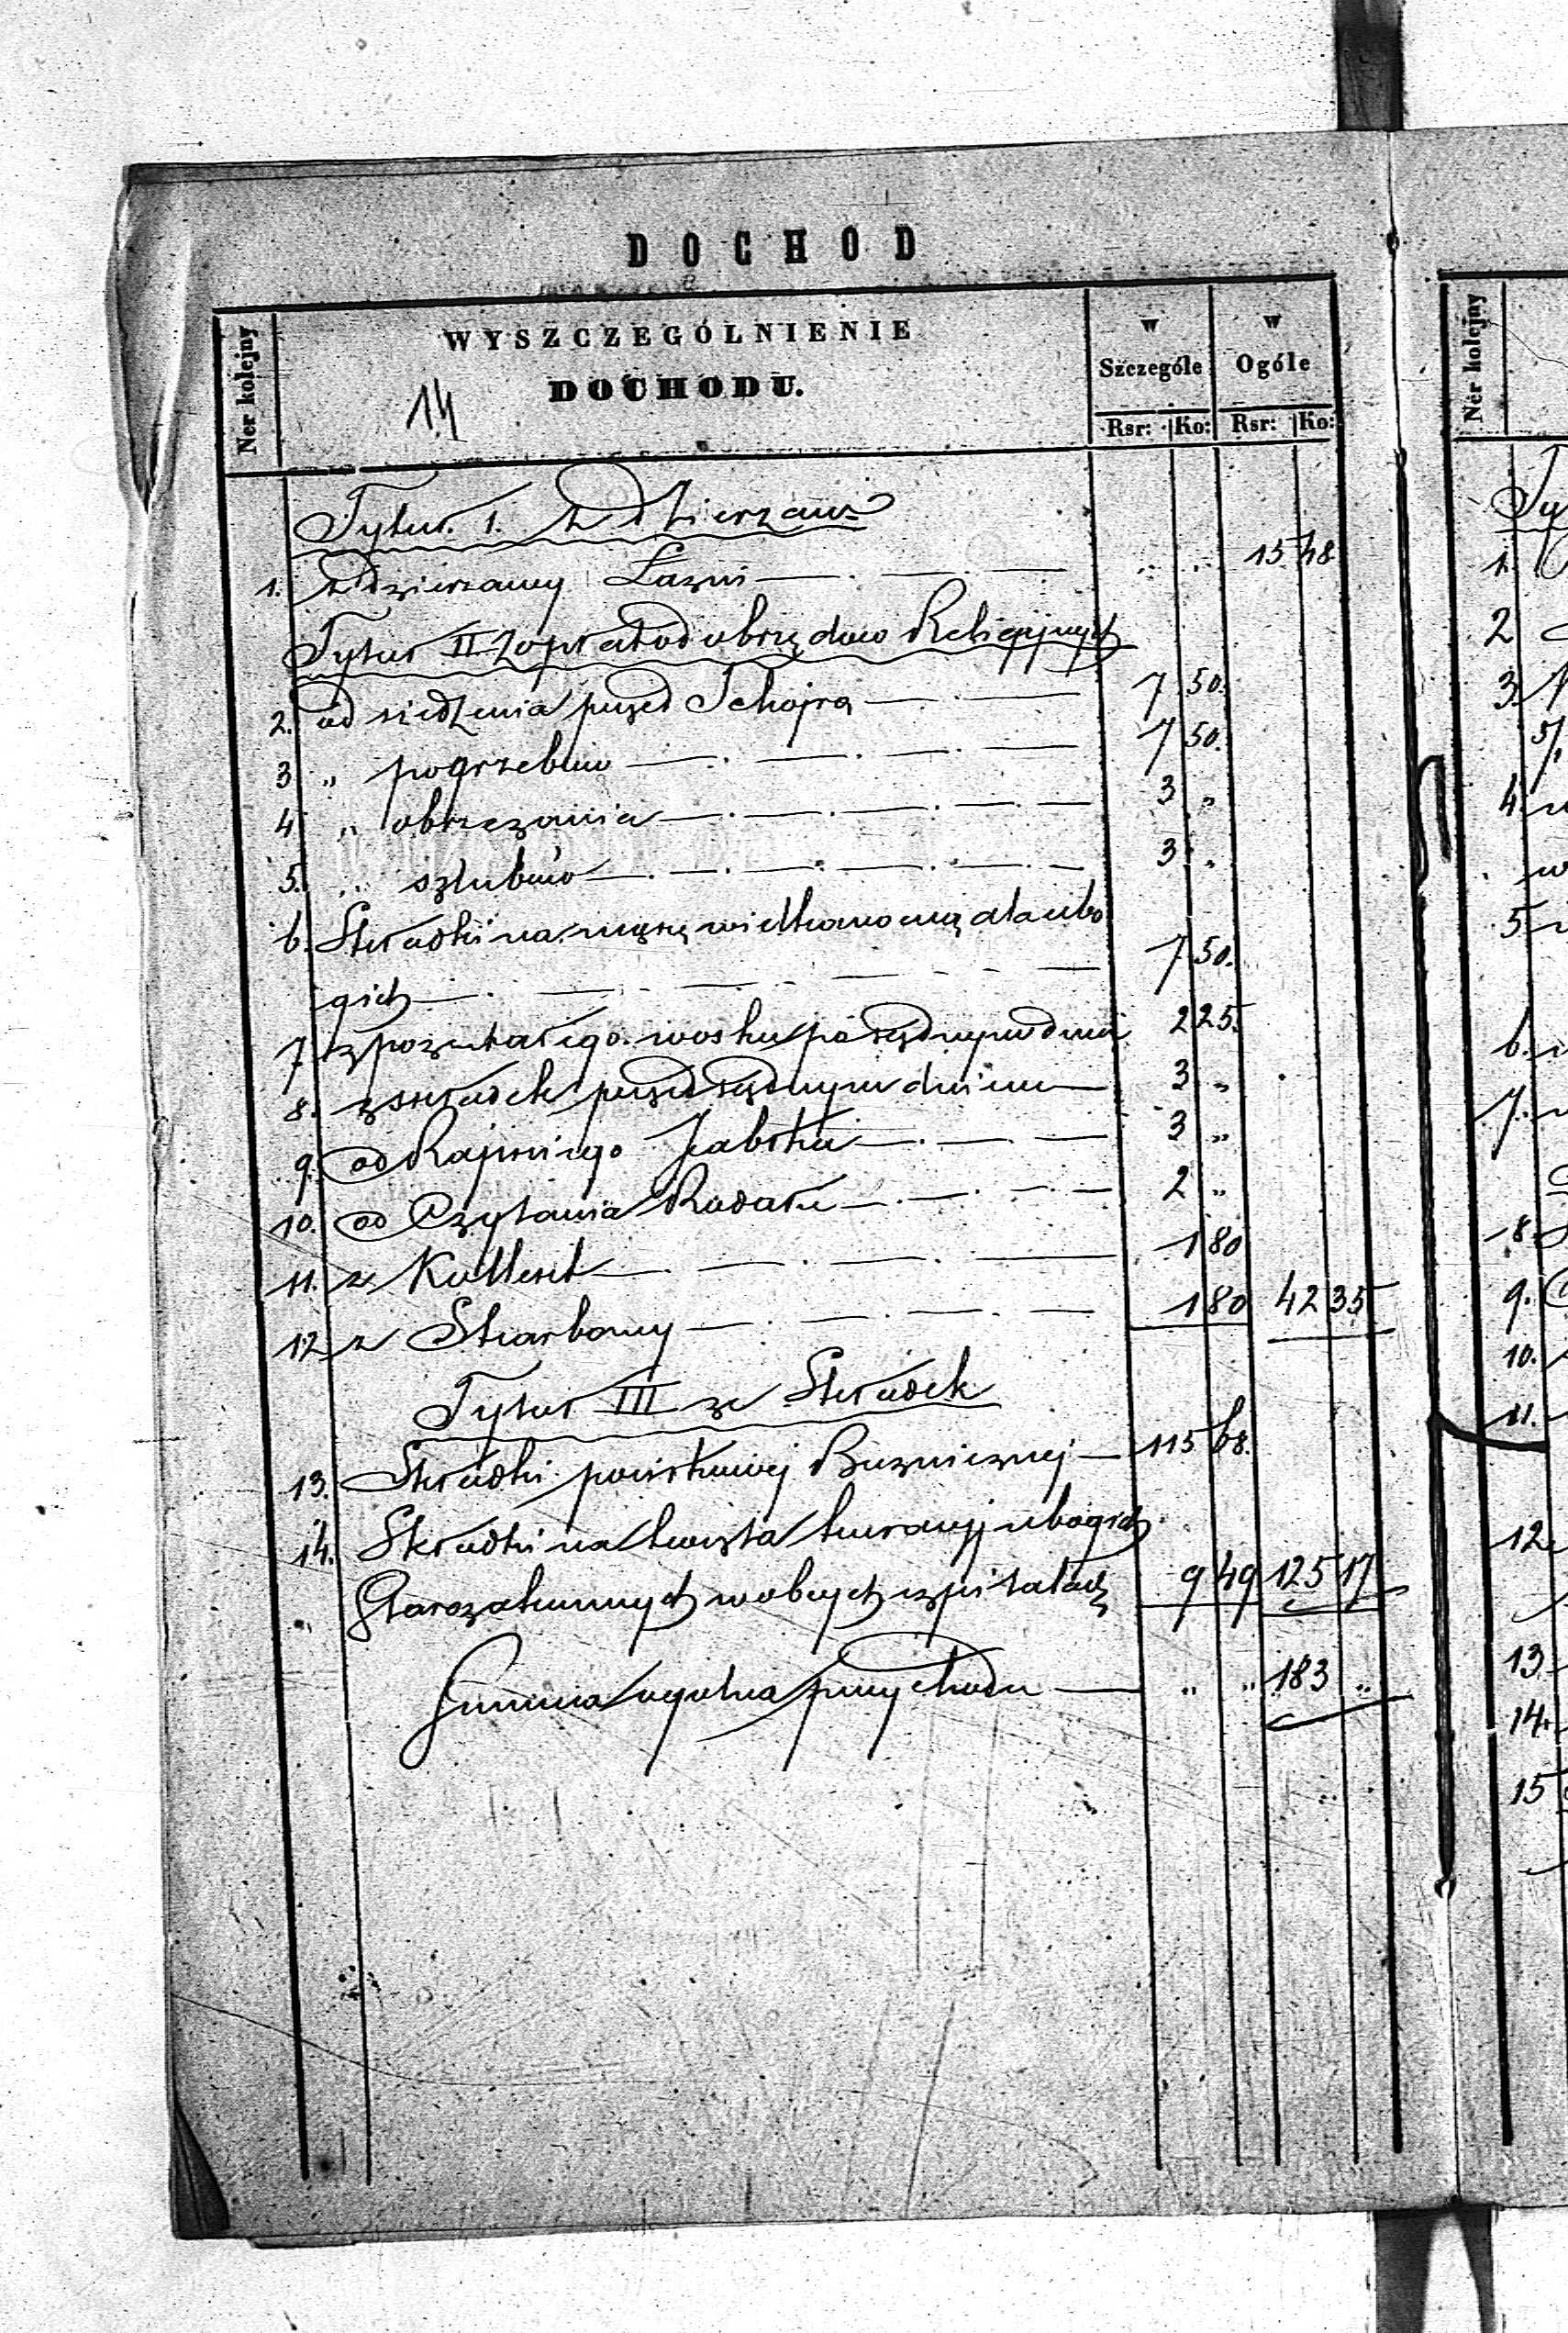 DOCHOD
Ner kolejny
WYSZCZEGÓLNIENIE
DOCHODU.
14
w Szczególe
w Ogóle
Rsr: Ko: Rsr: Ko:
Tytuł I. z dzierżaw
1. z dzierzawy Łazni 15 48
Tytuł II z opłat od obrzędów Religijnych
2. od siedzenia przed 7 50.
3 „ pogrzebów 7 50.
4 „ obrzezania 3 „
5. „ szlubów 3 „
6. Składki na mąkę wielkanocną dla ubo
gich 7 50.
7. z pozostałego wosku po sądnym dniu 2 25.
8. z składek przed sądnym dniem 3 „
9. od Rajskiego Jabłka 3 „
10. od Czytania Rodału 2 „
11. z Kollekt 1 80
12 z Skarbony 1 80 42 35
Tytuł III ze Składek
13. Składki Buznicznej 115 68.
14. Składki na koszta kuracyj ubogich
Starozakonnych w obcych szpitalach 9 49 125 17
Summa ogólna przychodu „ „ 183 „
Ner kolejny
1.
2
3.
4.
5
6.
7.
8.
9.
10.
11.
12
13.
14.
15